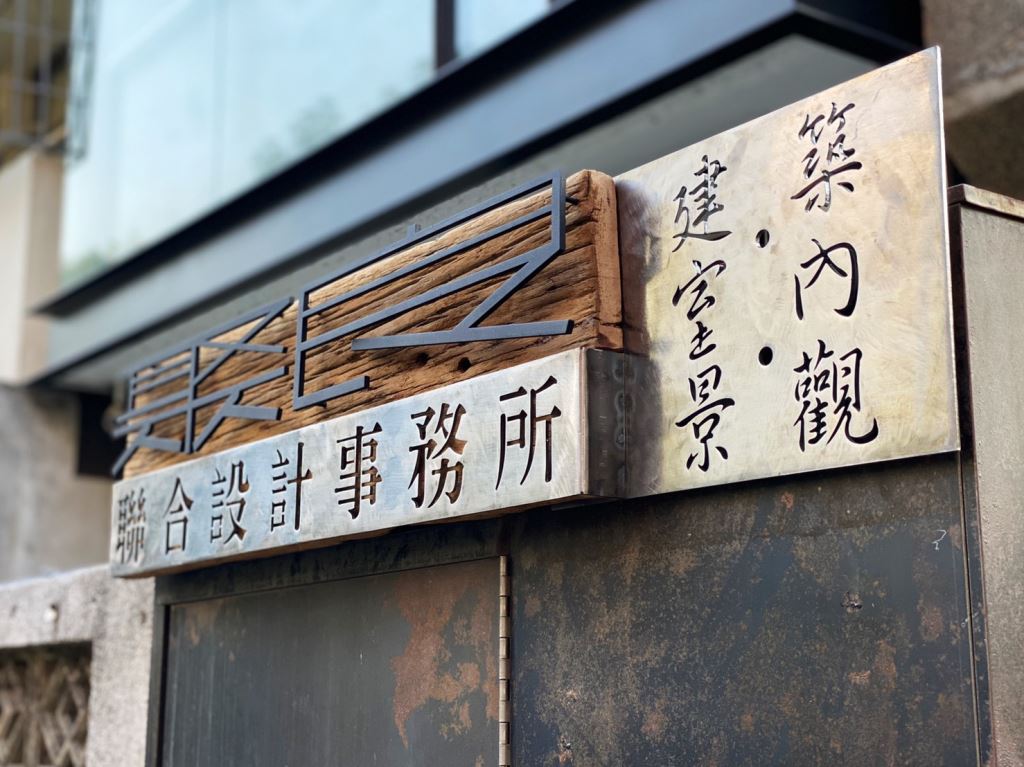 聯合設計事務所
建築
•
室內
•
景觀